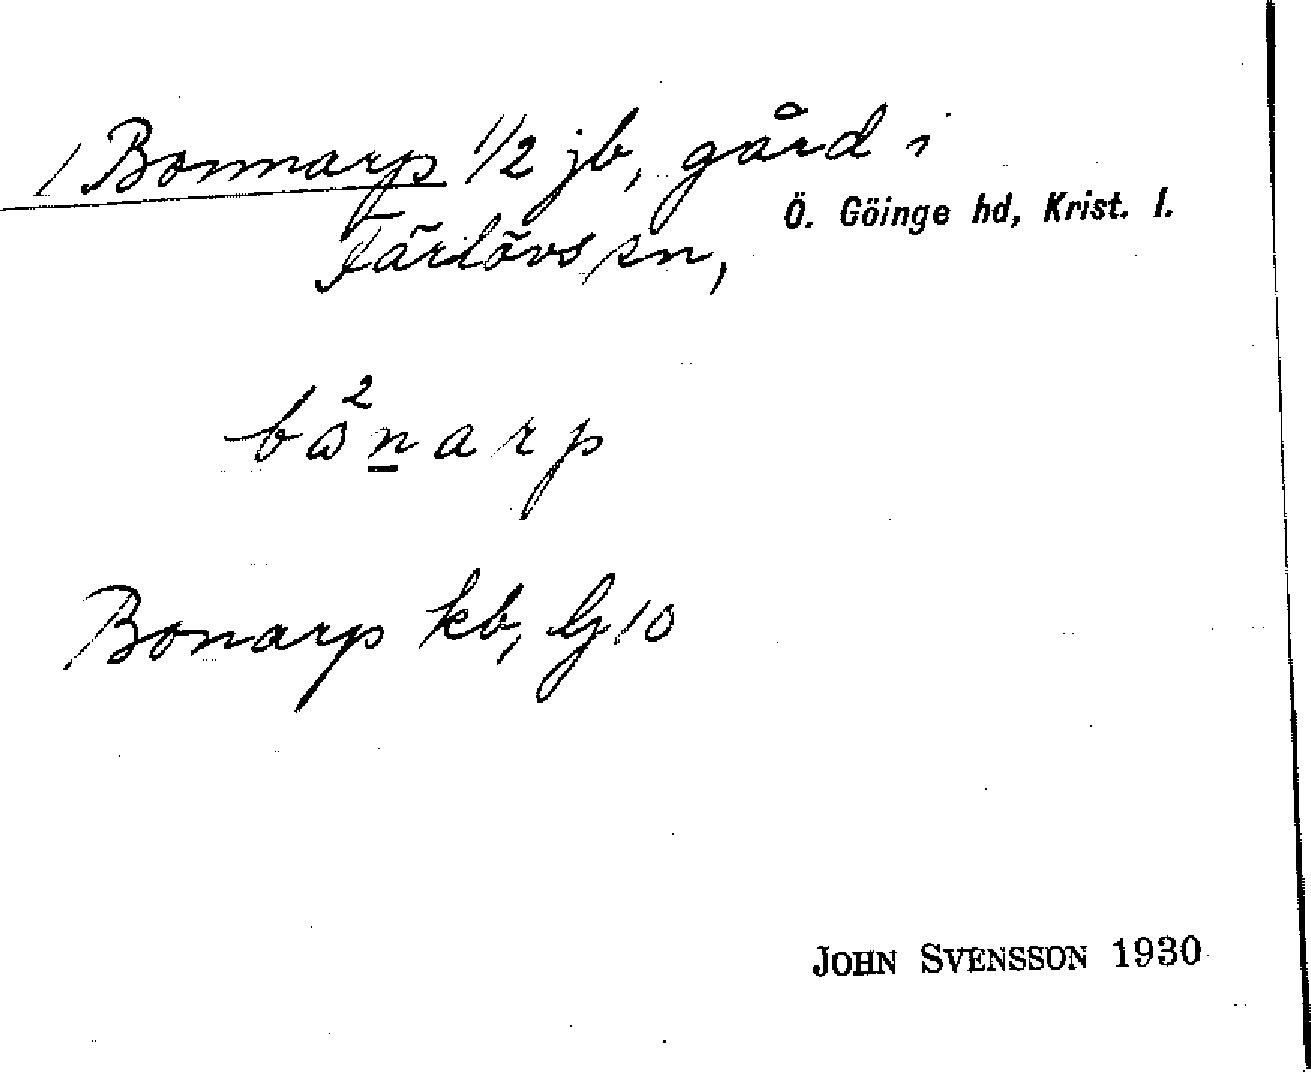 1 Bonnarp 1/2 jb, gård i
Färlövs sn, Ö. Göinge hd, Krist. l.
bω̊²n̲arp
Bonarp kb, G10
JOHN SVENSSON 1930